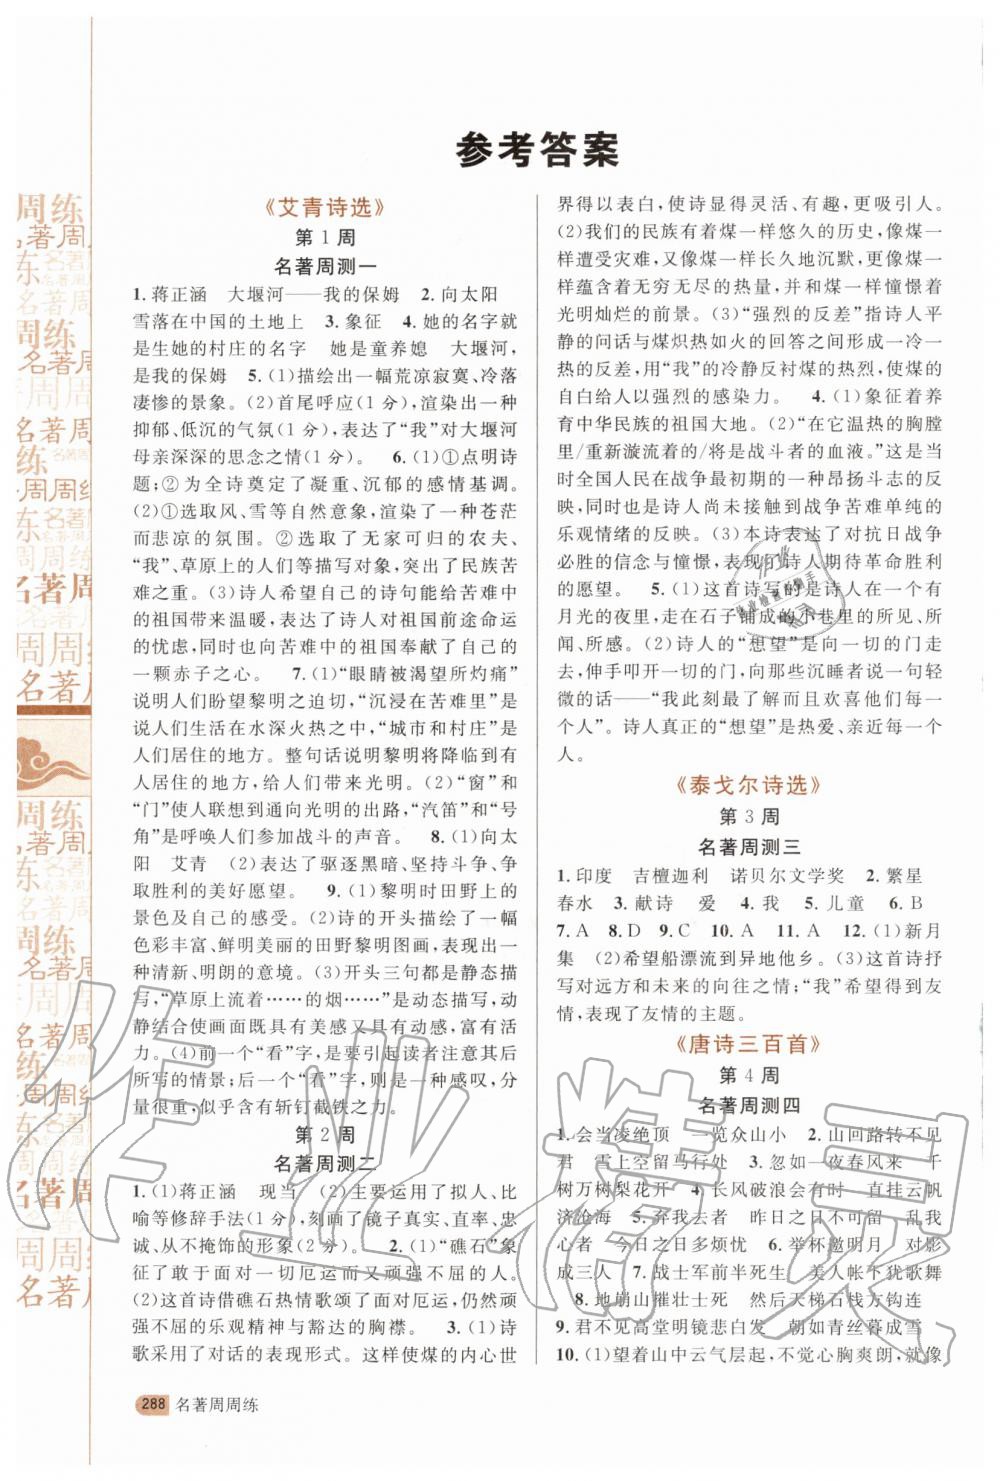 参考答案
《艾青诗选》
第1周
名著周测一
1.蒋正涵 大堰河——我的保姆 2.向太阳
雪落在中国的土地上 3.象征 4.她的名字就
是生她的村庄的名字 她是童养媳 大堰河,是
我的保姆 5.(1)描绘出一幅荒凉寂寞、冷落
凄惨的景象。(2)首尾呼应(1分),渲染出一种
抑郁、低沉的气氛(1分),表达了“我”对大堰河
母亲深深的思念之情(1分)。 6.(1)①点明诗
题;②为全诗奠定了凝重、沉郁的感情基调。
(2)①选取风、雪等自然意象,渲染了一种苍茫
而悲凉的氛围。②选取了无家可归的农夫、
“我”、草原上的人们等描写对象,突出了民族苦
难之重。(3)诗人希望自己的诗句能给苦难中
的祖国带来温暖,表达了诗人对祖国前途命运
的忧虑,和甘愿为苦难中的祖国奉献了自己的
一颗赤子之心。 7.(1)“眼睛被渴望所灼痛”
说明人们盼望黎明之迫切,“沉浸在苦难里”是
说人们生活在水深火热之中,“城市和村庄”是
人们居住的地方。整句话说明黎明将降临到有
人居住的地方,给人们带来光明。(2)“窗”和
“门”使人联想到通向光明的出路,“汽笛”和“号
角”是呼唤人们参加战斗的声音。 8.(1)向太
阳 艾青 (2)表达了驱逐黑暗、坚持斗争、争
取胜利的美好愿望。 9.(1)黎明时田野上的
景色及自己的感受。(2)诗的开头描绘了一幅
色彩丰富、鲜明美丽的田野黎明图画,表现出一
种清新、明朗的意境。(3)开头三句都是静态描
写,“草原上流着……的烟……”是动态描写,动
静结合使画面既具有美感又具有动感,富有活
力。(4)前一个“看”字,可以引起读者注意其后
所写的情景;后一个“看”字,则是一种感叹,分
量很重,似乎含有斩钉截铁之力。
第2周
名著周测二
1.(1)蒋正涵 现当 (2)主要运用了拟人、比
喻等修辞手法(1分),刻画了镜子真实、直率、忠
诚、从不掩饰的形象(2分)。 2.(1)“礁石”象
征了敢于面对一切厄运而又顽强不屈的人。
(2)这首诗借礁石热情歌颂了面对厄运,仍然顽
强不屈的乐观精神与豁达的胸襟。 3.(1)诗
歌采用了对话的表现形式。这样使煤的内心世
界得以表白,使诗显得灵活、有趣,更吸引人。
(2)我们的民族有着煤一样悠久的历史,像煤一
样遭受灾难,又像煤一样长久地沉默,更像煤一
样蕴含着无穷无尽的热量,并和煤一样憧憬着
光明灿烂的前景。(3)“强烈的反差”指诗人平
静的问话与煤炽热如火的回答之间形成一冷一
热的反差,用“我”的冷静反衬煤的热烈,使煤的
自白给人以强烈的感染力。 4.(1)象征着养
育中华民族的祖国大地。(2)“在它温热的胸膛
里/重新漩流着的/将是战斗者的血液。”这是当
时全国人民在战争最初期的一种昂扬斗志的反
映,同时也是诗人尚未接触到战争苦难单纯的
乐观情绪的反映。(3)本诗表达了对抗日战争
必胜的信念与憧憬,表现了诗人期待革命胜利
的愿望。 5.(1)这首诗写的是诗人在一个有
月光的夜里,走在石子铺成的小巷里的所见、所
闻、所感。(2)诗人的“想望”是向一切的门走
去,伸手叩开一切的门,向那些沉睡者说一句轻
微的话——“我此刻最了解而且欢喜他们每一
个人”。诗人真正的“想望”是热爱、亲近每一个
人。
《泰戈尔诗选》
第3周
名著周测三
1.印度 吉檀迦利 诺贝尔文学奖 2.繁星
春水 3.献诗 爱 4.我 5.儿童 6.B
7.A 8.D 9.C 10.A 11.A 12.(1)新月
集 (2)希望船漂流到异地他乡。(3)这首诗抒
写对远方和未来的向往之情;“我”希望得到友
情,表现了友情的主题。
《唐诗三百首》
第4周
名著周测四
1.会当凌绝顶 一览众山小 2.山回路转不见
君 雪上空留马行处 3.忽如一夜春风来 千
树万树梨花开 4.长风破浪会有时 直挂云帆
济沧海 5.弃我去者 昨日之日不可留 乱我
心者 今日之日多烦忧 6.举杯邀明月 对影
成三人 7.战士军前半死生 美人帐下犹歌舞
8.地崩山摧壮士死 然后天梯石栈方钩连
9.君不见高堂明镜悲白发 朝如青丝暮成雪
10.(1)望着山中云气层起,不禁心胸爽朗,就像
288 名著周周练
作业精灵